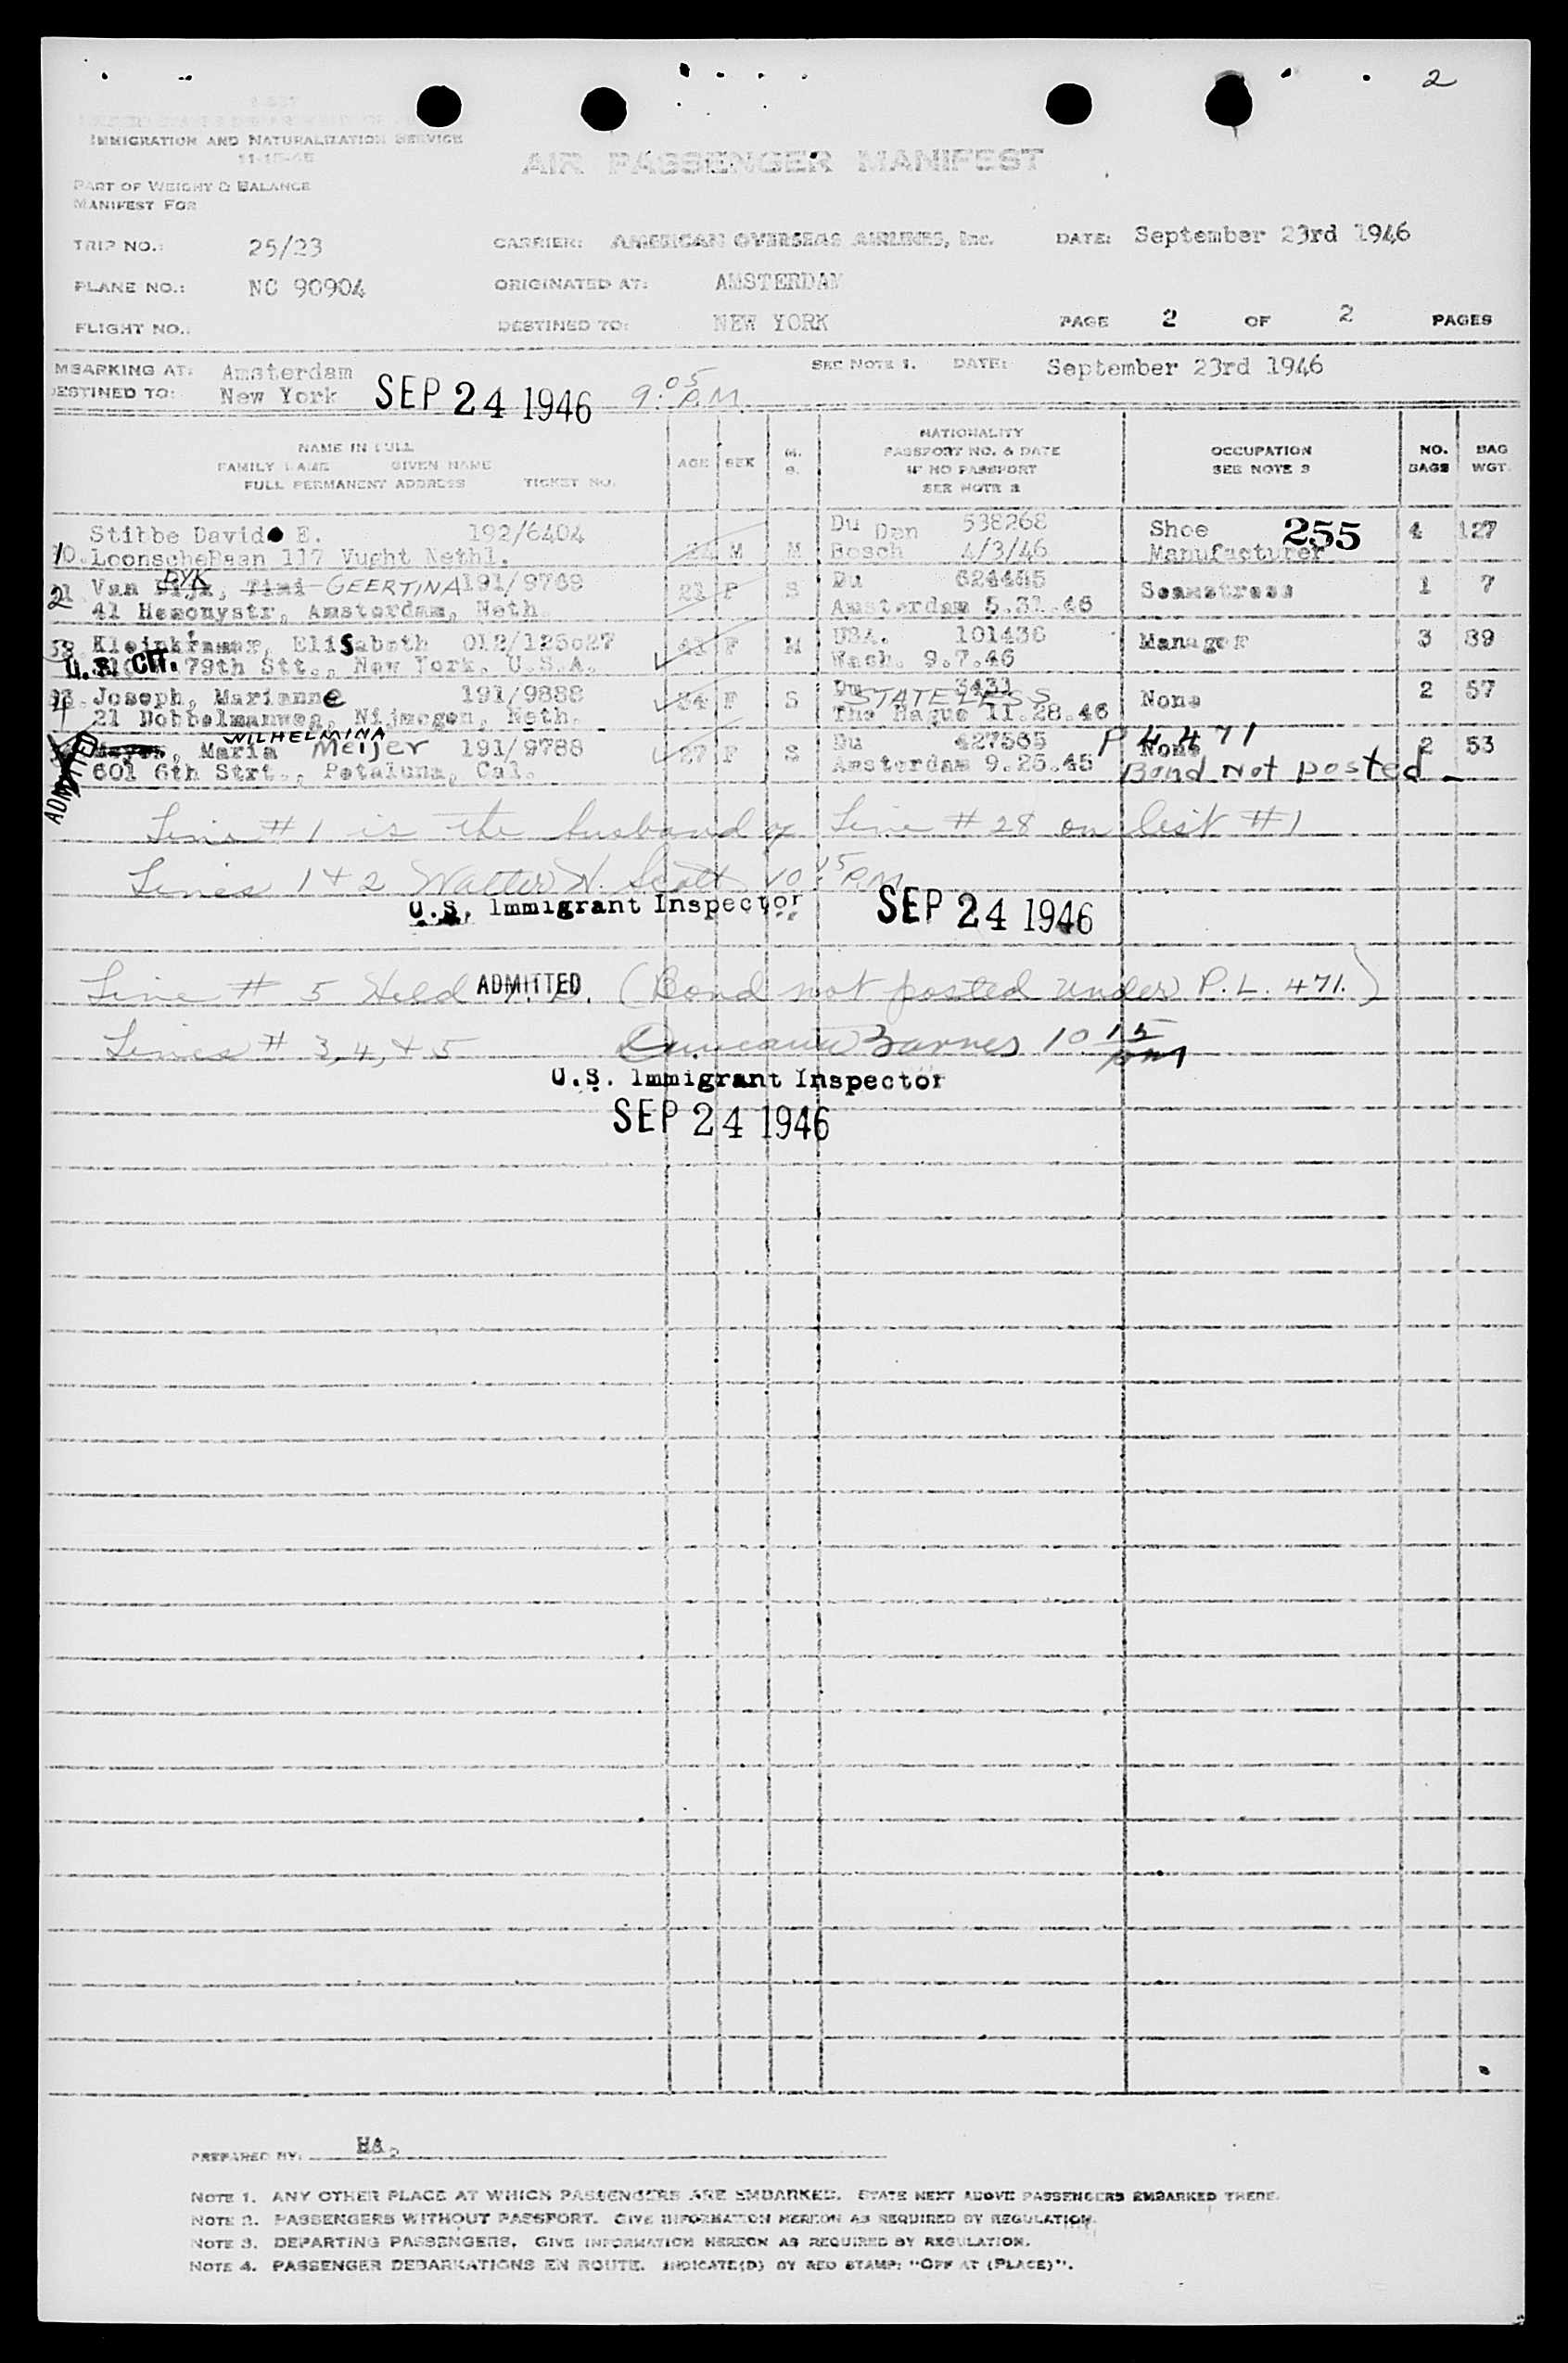 2
IMMIGRATION AND NATURALIZATION SERVICE
11-15-45
AIR PASSENGER MANIFEST
PART OF WEIGHT & BALANCE
MANIFEST FOR
TRIP NO.: 25/23 CARRIER: AMERICAN OVERSEAS AIRLINES, Inc. DATE: September 23rd 1946
PLANE NO.: NC 90904 ORIGINATED AT: AMSTERDAM
FLIGHT NO.: DESTINED TO: NEW YORK PAGE 2 OF 2 PAGES
MBARKING AT: Amsterdam SEE NOTE 1. DATE: September 23rd 1946
ESTINED TO: New York SEP 24 1946 9:05 P.M.
NAME IN FULL
FAMILY NAME GIVEN NAME
FULL PERMANENT ADDRESS TICKET NO.
AGE SEX M. S.
NATIONALITY
PASSPORT NO. & DATE
IF NO PASSPORT
SEE NOTE 2
OCCUPATION
SEE NOTE 3
NO. BAGS
BAG WGT.
Stibbe David E. 192/6404 M M Du Den 538268 Shoe 255 4 127
LoonscheBaan 117 Vught Nethl. Bosch 4/3/46 Manufacturer
2 Van Dijk, DYK Timi GEERTINA 191/9769 21 F S Du 624485 Seamstress 1 7
41 Hemonystr, Amsterdam, Neth. Amsterdam 5.31.46
Kleinkramer, Elisabeth 012/125027 41 F M USA. 101436 Manager 3 39
U.S. CIT. 79th Stt., New York, U.S.A. Wash. 9.7.46
4 Joseph, Marianne 191/9888 34 F S Du 3431 STATELESS None 2 57
21 Dobbelmanweg, Nijmegen, Neth. The Hague 11.28.46
ADMITTED Maria WILHELMINA Meijer 191/9788 27 F S Du 427565 P L 471 None 2 53
601 6th Strt., Petaluma, Cal. Amsterdam 9.25.45 Bond Not posted
Line #1 is the husband of Line #28 on list #1
Lines 1 & 2 Walter H. Scott 10:15 P.M.
U.S. Immigrant Inspector SEP 24 1946
Line # 5 Held ADMITTED (Bond not posted under P.L. 471.)
Lines # 3, 4, & 5 Barnes 10 15 pm
U.S. Immigrant Inspector
SEP 24 1946
PREPARED BY: HA.
NOTE 1. ANY OTHER PLACE AT WHICH PASSENGERS ARE EMBARKED. STATE NEXT ABOVE PASSENGERS EMBARKED THERE.
NOTE 2. PASSENGERS WITHOUT PASSPORT. GIVE INFORMATION HEREON AS REQUIRED BY REGULATION.
NOTE 3. DEPARTING PASSENGERS. GIVE INFORMATION HEREON AS REQUIRED BY REGULATION.
NOTE 4. PASSENGER DEBARKATIONS EN ROUTE. INDICATE(D) BY RED STAMP: "OFF AT (PLACE)".